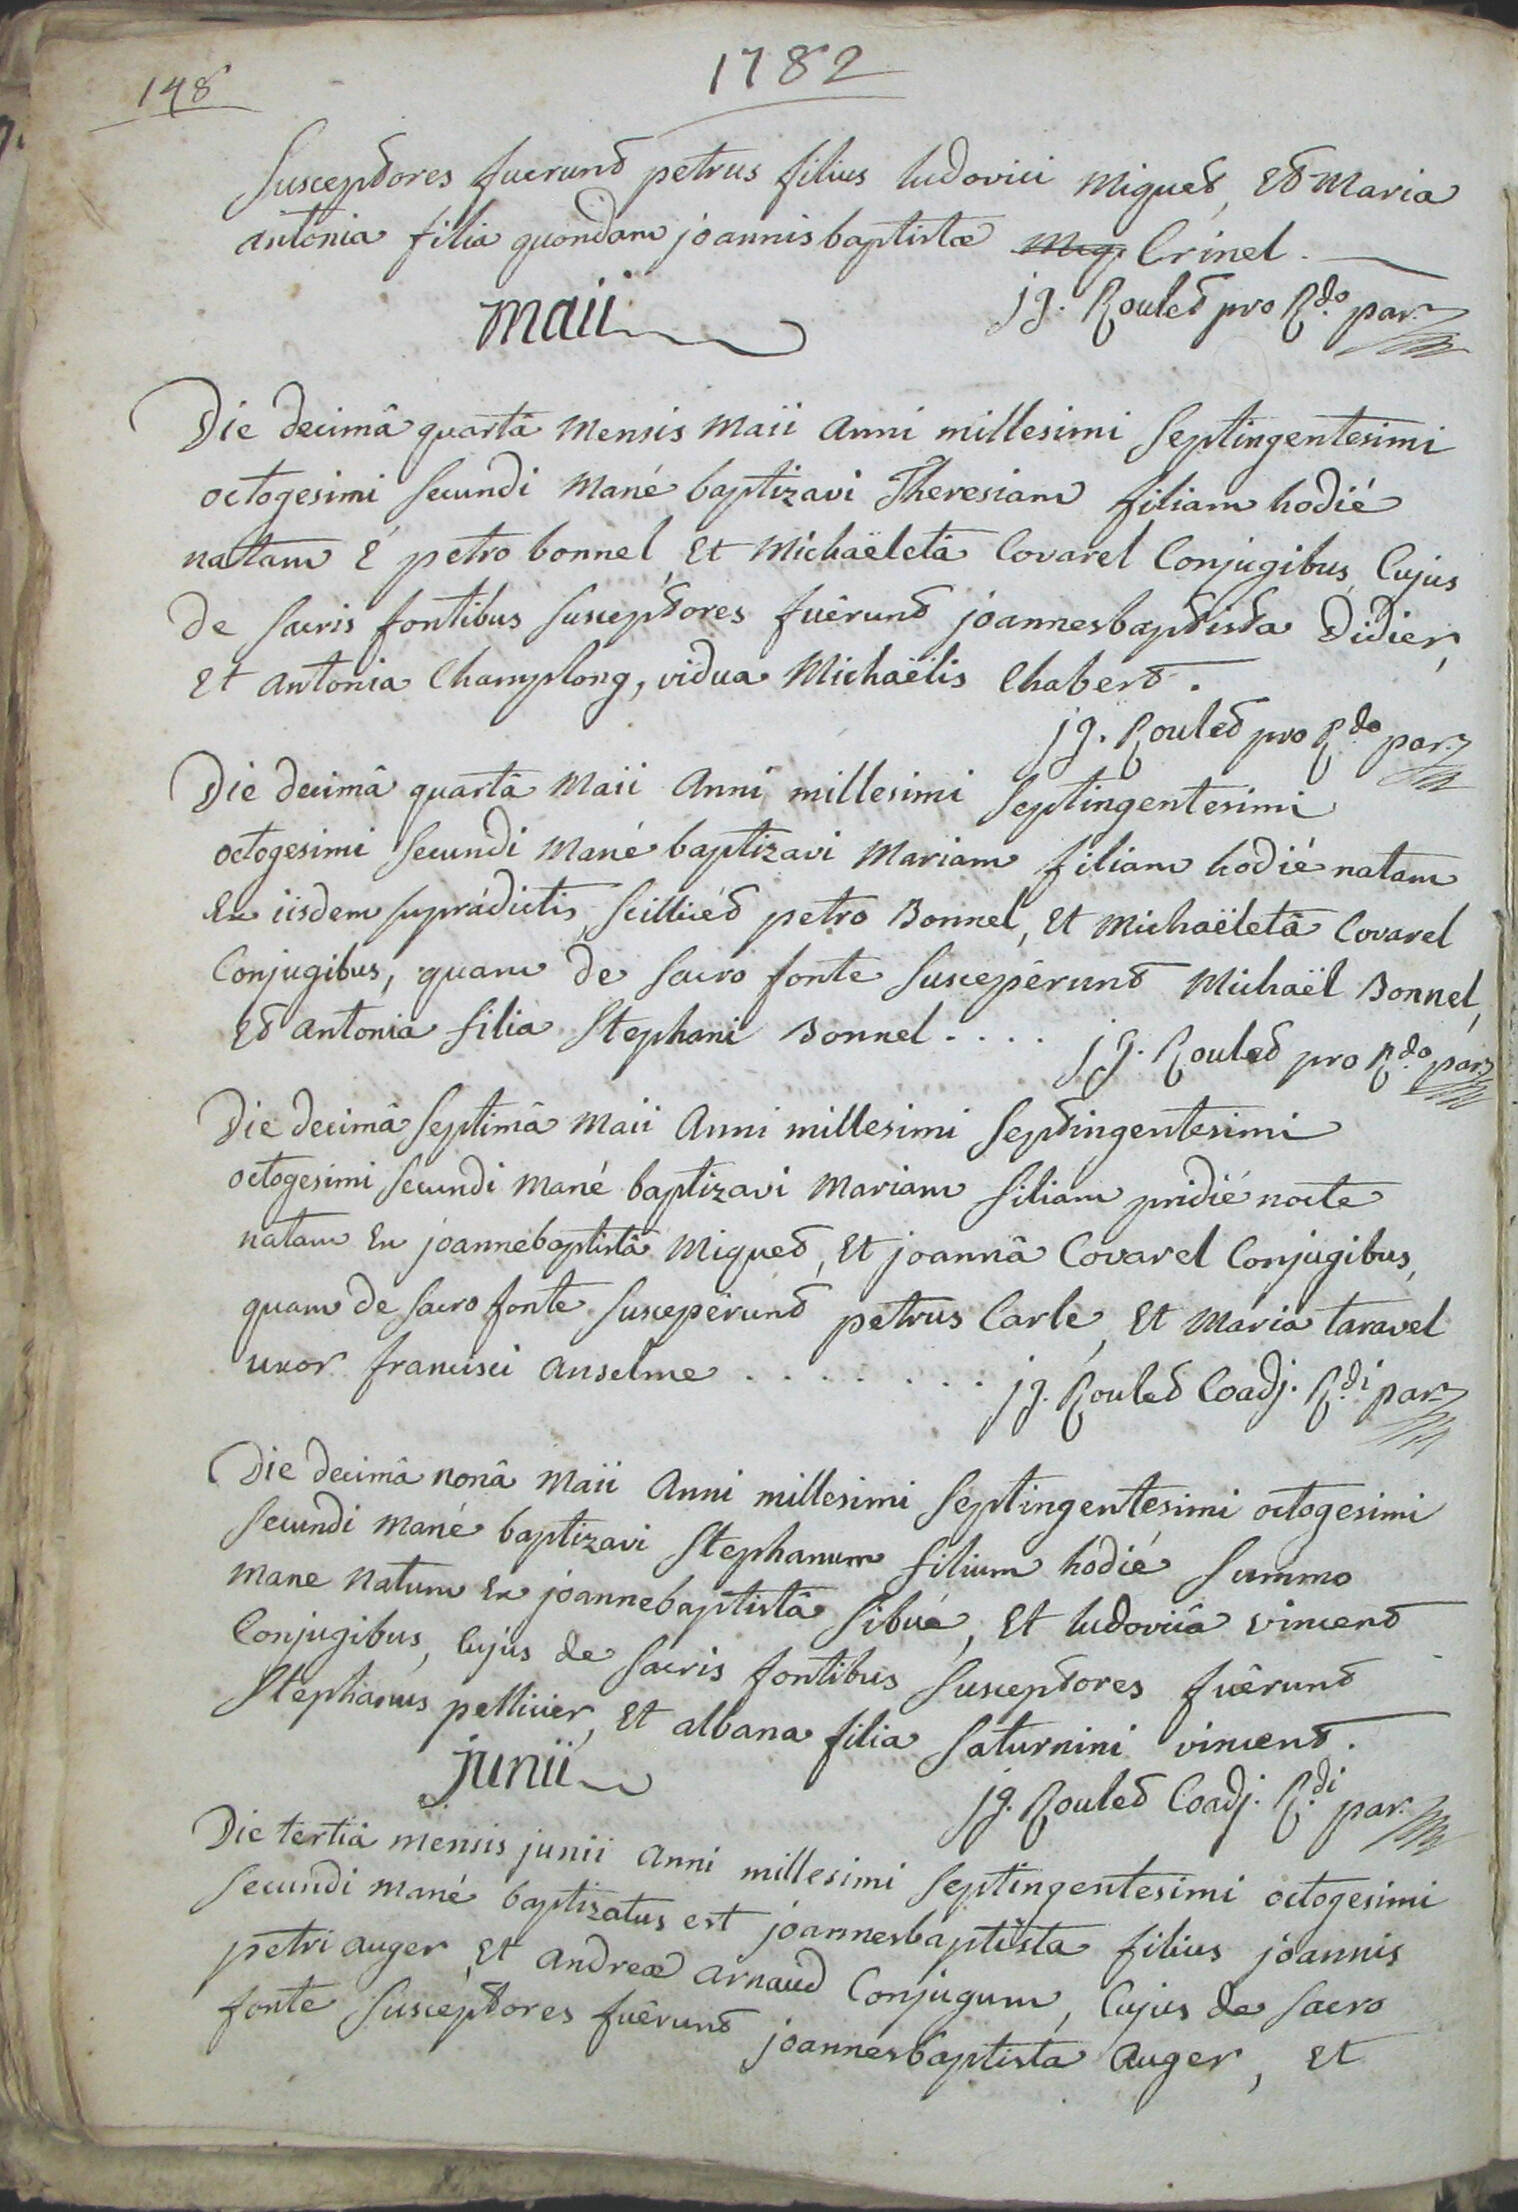 148
1782
Susceptores fuerunt petrus filius ludovici Miquet, Et Maria
antonia filia quondam joannisbaptistæ Mig. Crinel.
jg. Roulet pro Rdo. par.
Maii
Die decimâ quartâ Mensis Maii Anni millesimi Septingentesimi
octogesimi Secundi Mané baptizavi Theresiam filiam hodié
natam é petro bonnel, Et Michaëletâ Covarel Conjugibus, Cujus
de Sacris fontibus Susceptores fuêrunt joannesbaptista Didier,
Et antonia Champlong, vidua Michaëlis Chabert.
jg. Roulet pro Rdo par.
Die decimâ quartâ Maii Anni millesimi Septingentesimi
octogesimi Secundi Mané baptizavi Mariam filiam hodié natam
Ex iisdem suprádictis, Scilliéet petro Bonnel, Et Michaëletâ Covarel
Conjugibus, quam de Sacro fonte Suscepêrunt Michaël Bonnel,
Et antonia filia Stephani Bonnel. . . .
jg. Roulet pro Rdo. par.
Die decimâ Septimâ Maii Anni millesimi Septingentesimi
octogesimi Secundi Mané baptizavi Mariam filiam pridié nocte
natam Ex joannebaptistâ Miquet, Et joannâ Covarel Conjugibus,
quam de Sacro fonte Suscepêrunt petrus Carle, Et Maria taravel
uxor francisci anselme . . . . . . .
jg. Roulet Coadj. Rdi. par.
Die decimâ nonâ Maii Anni millesimi Septingentesimi octogesimi
Secundi mané baptizavi Stephanum filium hodié Summo
mane Natum Ex joannebaptistâ Sibué, Et ludovicâ vincent
Conjugibus, Cujus de Sacris fontibus Susceptores fuêrunt
Stephanus pellicier, Et albana filia Saturnini vincent.
jg. Roulet Coadj. Rdi. par.
junii
Die tertiâ mensis junii Anni millesimi Septingentesimi octogesimi
Secundi mané baptizatus est joannesbaptista filius joannis
petri auger, Et andreæ arnaud Conjugum, Cujus de Sacro
fonte Susceptores fuêrunt joannesbaptista Auger, Et